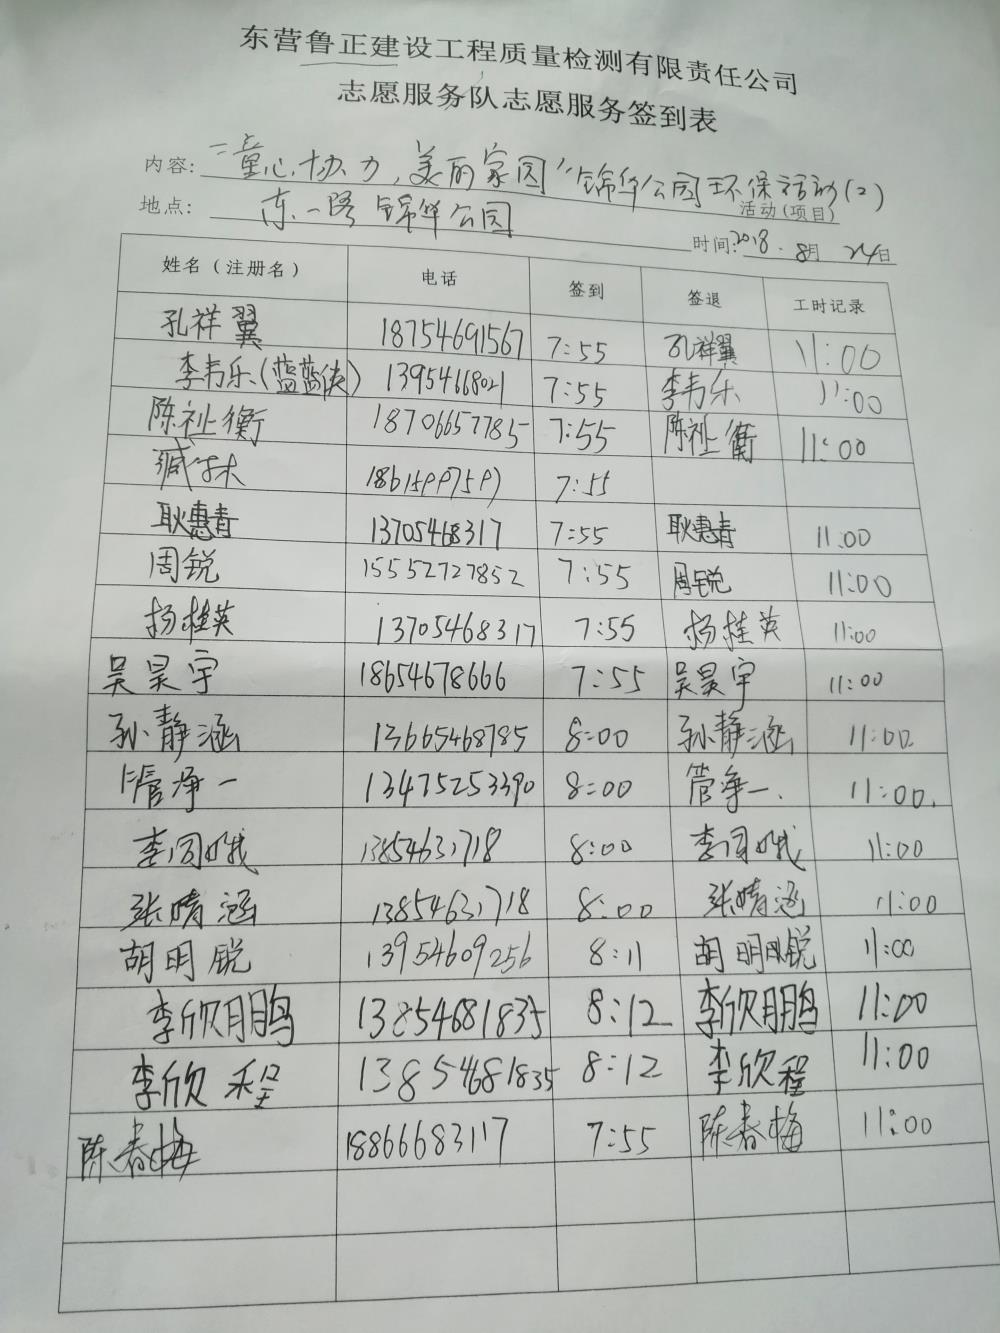 东营鲁正建设工程质量检测有限责任公司
志愿服务队志愿服务签到表
内容: "童心协力,美丽家园"锦华公园环保活动(2)
活动(项目)
地点: 东一路锦华公园
时间:2018.8月24日
姓名(注册名) 电话 签到 签退 工时记录
孔祥翼 18754691567 7:55 孔祥翼 11:00
李韦乐(蓝蓝侠) 13954668021 7:55 李韦乐 11:00
陈祉衡 18706657785 7:55 陈祉衡 11:00
7:55
耿惠青 13705468317 7:55 耿惠青 11:00
周锐 15552727852 7:55 周锐 11:00
杨桂英 13705468317 7:55 杨桂英 11:00
吴昊宇 18654678666 7:55 吴昊宇 11:00
孙静涵 13665468785 8:00 孙静涵 11:00
管净一 13475253390 8:00 管净一. 11:00.
李同娥 13854631718 8:00 李同娥 11:00
张晴涵 13854631718 8:00 张晴涵 11:00
胡明锐 13954609256 8:11 胡明锐 11:00
李欣鹏 13854681835 8:12 李欣鹏 11:00
李欣程 13854681835 8:12 李欣程 11:00
陈春梅 18866683117 7:55 陈春梅 11:00